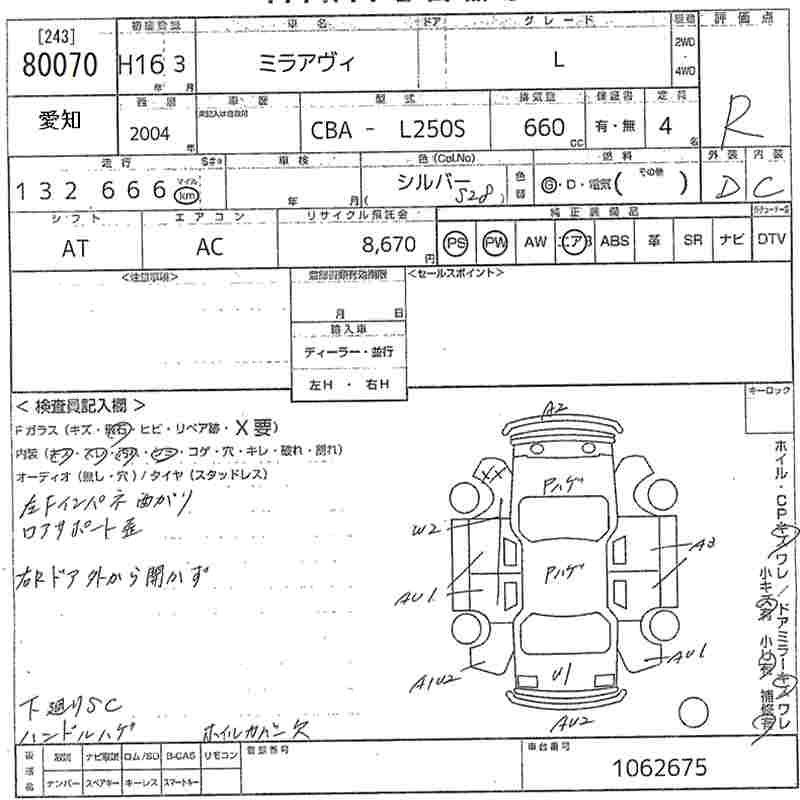 [243]
80070
初度登録
H16 3
年 月
車名
ミラアヴィ
ドア
グレード
L
駆動
2WD
・
4WD
評価点
R
愛知
2004 年
車歴
型式
CBA - L250S
排気量
660 cc
保証書
有・無
定員
4 名
走行
132 666
マイル
km
車検
年 月
色 (Col.No)
シルバー
S28
色替
燃料
G・D・電気 ( その他 )
外装
D
内装
C
シフト
AT
エアコン
AC
リサイクル預託金
8,670 円
純正装備品
PS PW AW エアB ABS 革 SR ナビ DTV
<注意事項>
月 日
輸入車
ディーラー・並行
左H ・ 右H
<セールスポイント>
< 検査員記入欄 >
キーロック
Fガラス (キズ・飛石・ヒビ・リペア跡・X要)
・コゲ・穴・キレ・破れ・割れ)
オーディオ (無し・穴) / タイヤ (スタッドレス)
左Fインパネ曲がり
ロアサポート歪
右Rドア外から開かず
下廻りSC
ハンドルハゲ
ホイルカバー欠
A2
XX
Pハゲ
W2
A3
Pハゲ
AU1
A1U2
U1
AU1
AU2
ホイル・CP
ワレ/ドアミラー
ワレ
補修有
ナビ取説 ロム/SD B-CAS リモコン
ナンバー スペアキー キーレス スマートキー
登録番号
車台番号
1062675